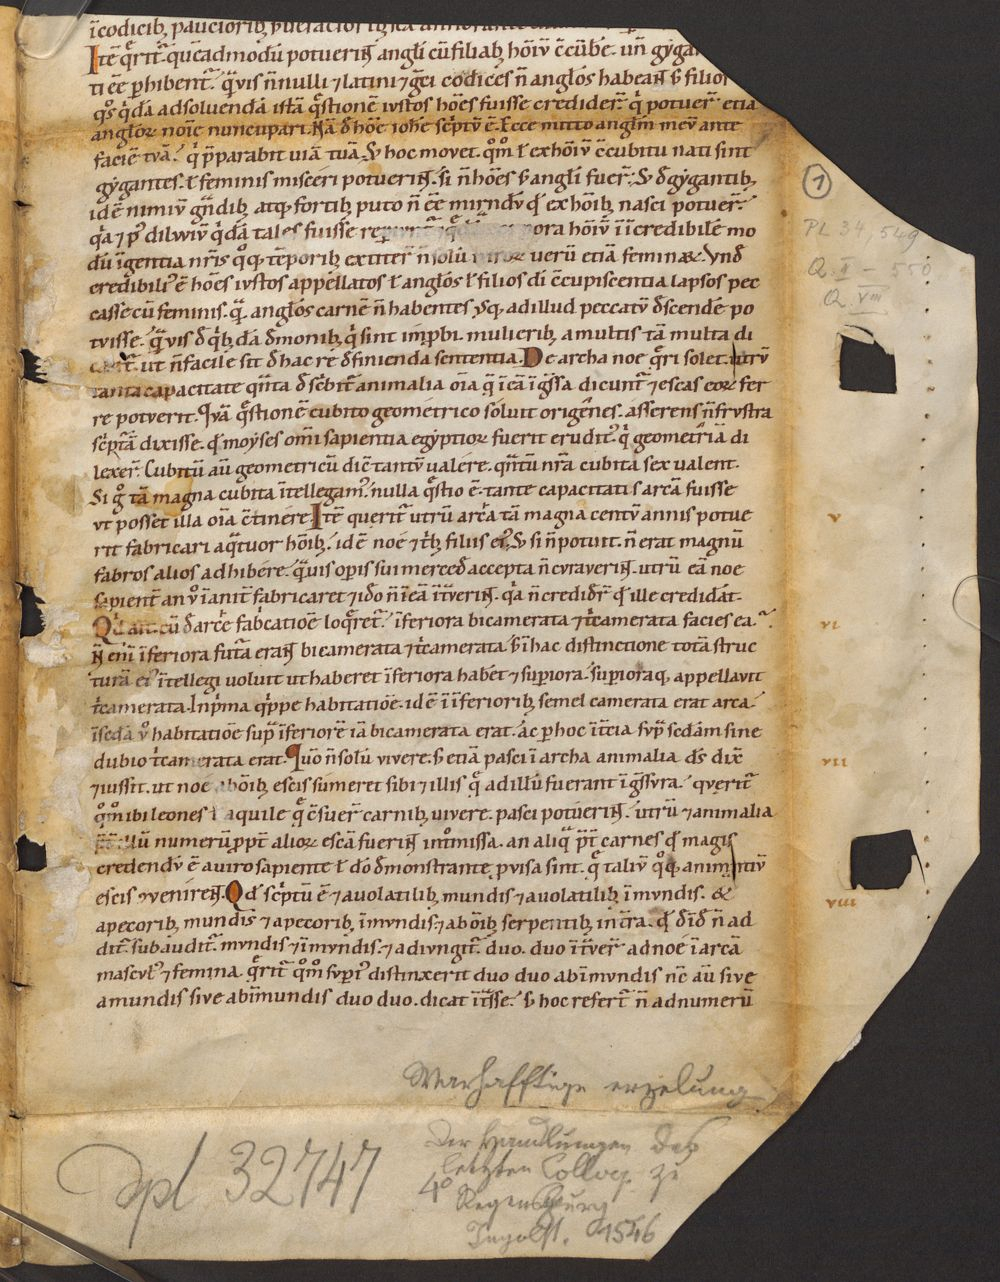 īcodicib; pauciorib; & veracior ib;
Itē q̄rit̄ quēadmodū potuerin̄t angl̄i cū filiab; hōiū c̄cūbe. un̄ gygan
ti eē ꝑhibent̄. q̄vis n̄nulli ⁊ latini ⁊ ḡci codices n̄ anglo̓s habean̄t ſ; filios
q̊s q̓dā adsolvendā istā q̄stionē iustos hōes fuisse crediderunt̄ q̓ potuer̄ etiā
anglo̓ꝝ noīe nuncupari. Nā de hōe iohe sc̓ptū ē. Ecce mitto anglm̄ meū ante
faciē tuā. q̓ p̄parabit uiā tuā. Ꞩ; hoc movet. q̊m̊ ł ex hōiū c̄cubitu nati sint
gygantes. ł feminis misceri potuerin̄t. si n̄ hōes ſ; angl̄i fuer̄. Ꞩ; de gygantib;
id ē nimiū ḡndib; atq; fortib; puto n̄ eē mirndū qd̓ ex hōib; nasci potuer̄.
q̓a ⁊ p̓ diluviū q̓dā tales fuisse reperiunt̄ ⁊ q̄dā corpora hōiū īcredibile mo
dū īgentia nr̄is q̊q; tēporib; extiter̄ n̄ solū viroꝝ verū etiā feminaꝝ. Und̓
credibili᷒ ē hōes iustos appellatos ł anglo̓s ł filios di c̄cupiscentia lapsos pec
casse cū feminis. q̄ anglo̓s carnē n̄ habentes usq; ad illud peccatū d̓scende po
tuisse. q̄vis d̓ q̓b;dā d̓monib; q̓ sint imp̄bi mulierib; a multis tā multa di
cant̄. ut n̄ facile sit d̓ hac re d̓finienda sententia. De archa noe q̄ri solet. utrū
tanta capacitate q̄nta d̓sc̓bit̄ animalia oīa q̄ ī eā īg̓ssa dicunt̄ ⁊ escas eoꝝ fer
re potuerit. Quā q̄stionē cubito geometrico soluit origenes. asserens n̄ frustra
sc̓ptā dixisse. qd̓ moyses omī sapientia egyptioꝝ fuerit erudit᷒ q̓ geometriā di
lexer̄. Cubitū aū geometricū dic̄ tantū valere. q̄ntū nr̄a cubita sex valent.
Si g̊ tā magna cubita ītellegam᷒. nulla q̄stio ē. tante capacitatis arcā fuisse
ut posset illa oīa c̄tinere. Itē querit̄ utrū arca tā magna centū annis potue
rit fabricari a q̄tuor hōib;. id ē noe ⁊ t̓b; filiis ei᷒. Ꞩ; si n̄ potuit. n̄ erat magnū
fabros alios adhibere. q̄uis opis sui merced̓ accepta n̄ curaverin̄t. utrū eā noe
sapient̄ an ů īanit̄ fabricaret ⁊ id̊ n̄ ī eā īt̄verin̄t. q̓a n̄ credider̄ qd̓ ille credidat̓.
Quid ait. cū d̓ arce fab̓catiōe loq̄ret̄. īferiora bicamerata ⁊ t̓camerata facies ea.
N̄ enī īferiora fut̄a eran̄t bicamerata ⁊ t̓camerata ſ; ī hac distinctione totā struc
turā ei᷒ ītellegi voluit ut haberet īferiora habet ⁊ supiora. supioraq; appellavit
t̓camerata. Inp̓ma q̓ppe habitatiōe. id ē ī īferiorib; semel camerata erat arca.
īsedā ů habitatiōe sup̄ īferiorē iā bicamerata erat. ac ꝑ hoc ī t̄cia sup̄ sedām sine
dubio t̓camerata erat. Quō n̄ solū vivere. ſ; etiā pasci ī archa animalia ds̄ dix̄
⁊ iussit. ut noe ab hōib; escis sumeret sibi ⁊ illis q̄ ad illū fuerant īg̓ssura. querit̄
q̊m̊ ibi leones ł aquile q̄ c̄suer̄ carnib; vivere. pasci potuerin̄t. utrū ⁊ animalia
p̄t̄ illū numerū ppt̄ alioꝝ escā fuerin̄t int̊missa. an aliq̄ p̄t̄ carnes qd̓ magis
credendū ē a viro sapiente ł dō d̓monstrante pvisa sint. q̄ taliū q̊q; animantiū
escis ꝯvenirēt. Qd̓ sc̓ptū ē ⁊ a volatilib; mundis ⁊ a volatilib; īmundis. &
a pecorib; mundis ⁊ a pecorib; īmundis. ⁊ ab oīb; serpentib; in t̄ra. qd̓ d̄īd̄ n̄ ad
dit̄. subaudit̄. mundis ⁊ īmundis. ⁊ adiungit̄. duo. duo īt̓ver̄ ad noe ī arcā
mascul᷒ ⁊ femina. q̄rit̄ q̊m̊ supi᷒ distinxerit duo duo ab īmundis nc̄ aū sive
a mundis sive ab īmundis duo duo. dicat īt̄sse. ſ; hoc refert̄ n̄ ad numerū
1
PL 34, 549
Q. II – 550
Q. VIII
V
VI
VII
VIII
Warhafftige erzelung
Der Handlungen des
letzten Colloq. zu
4° Regensburg
Ingolst. 1546
Dpl 32747